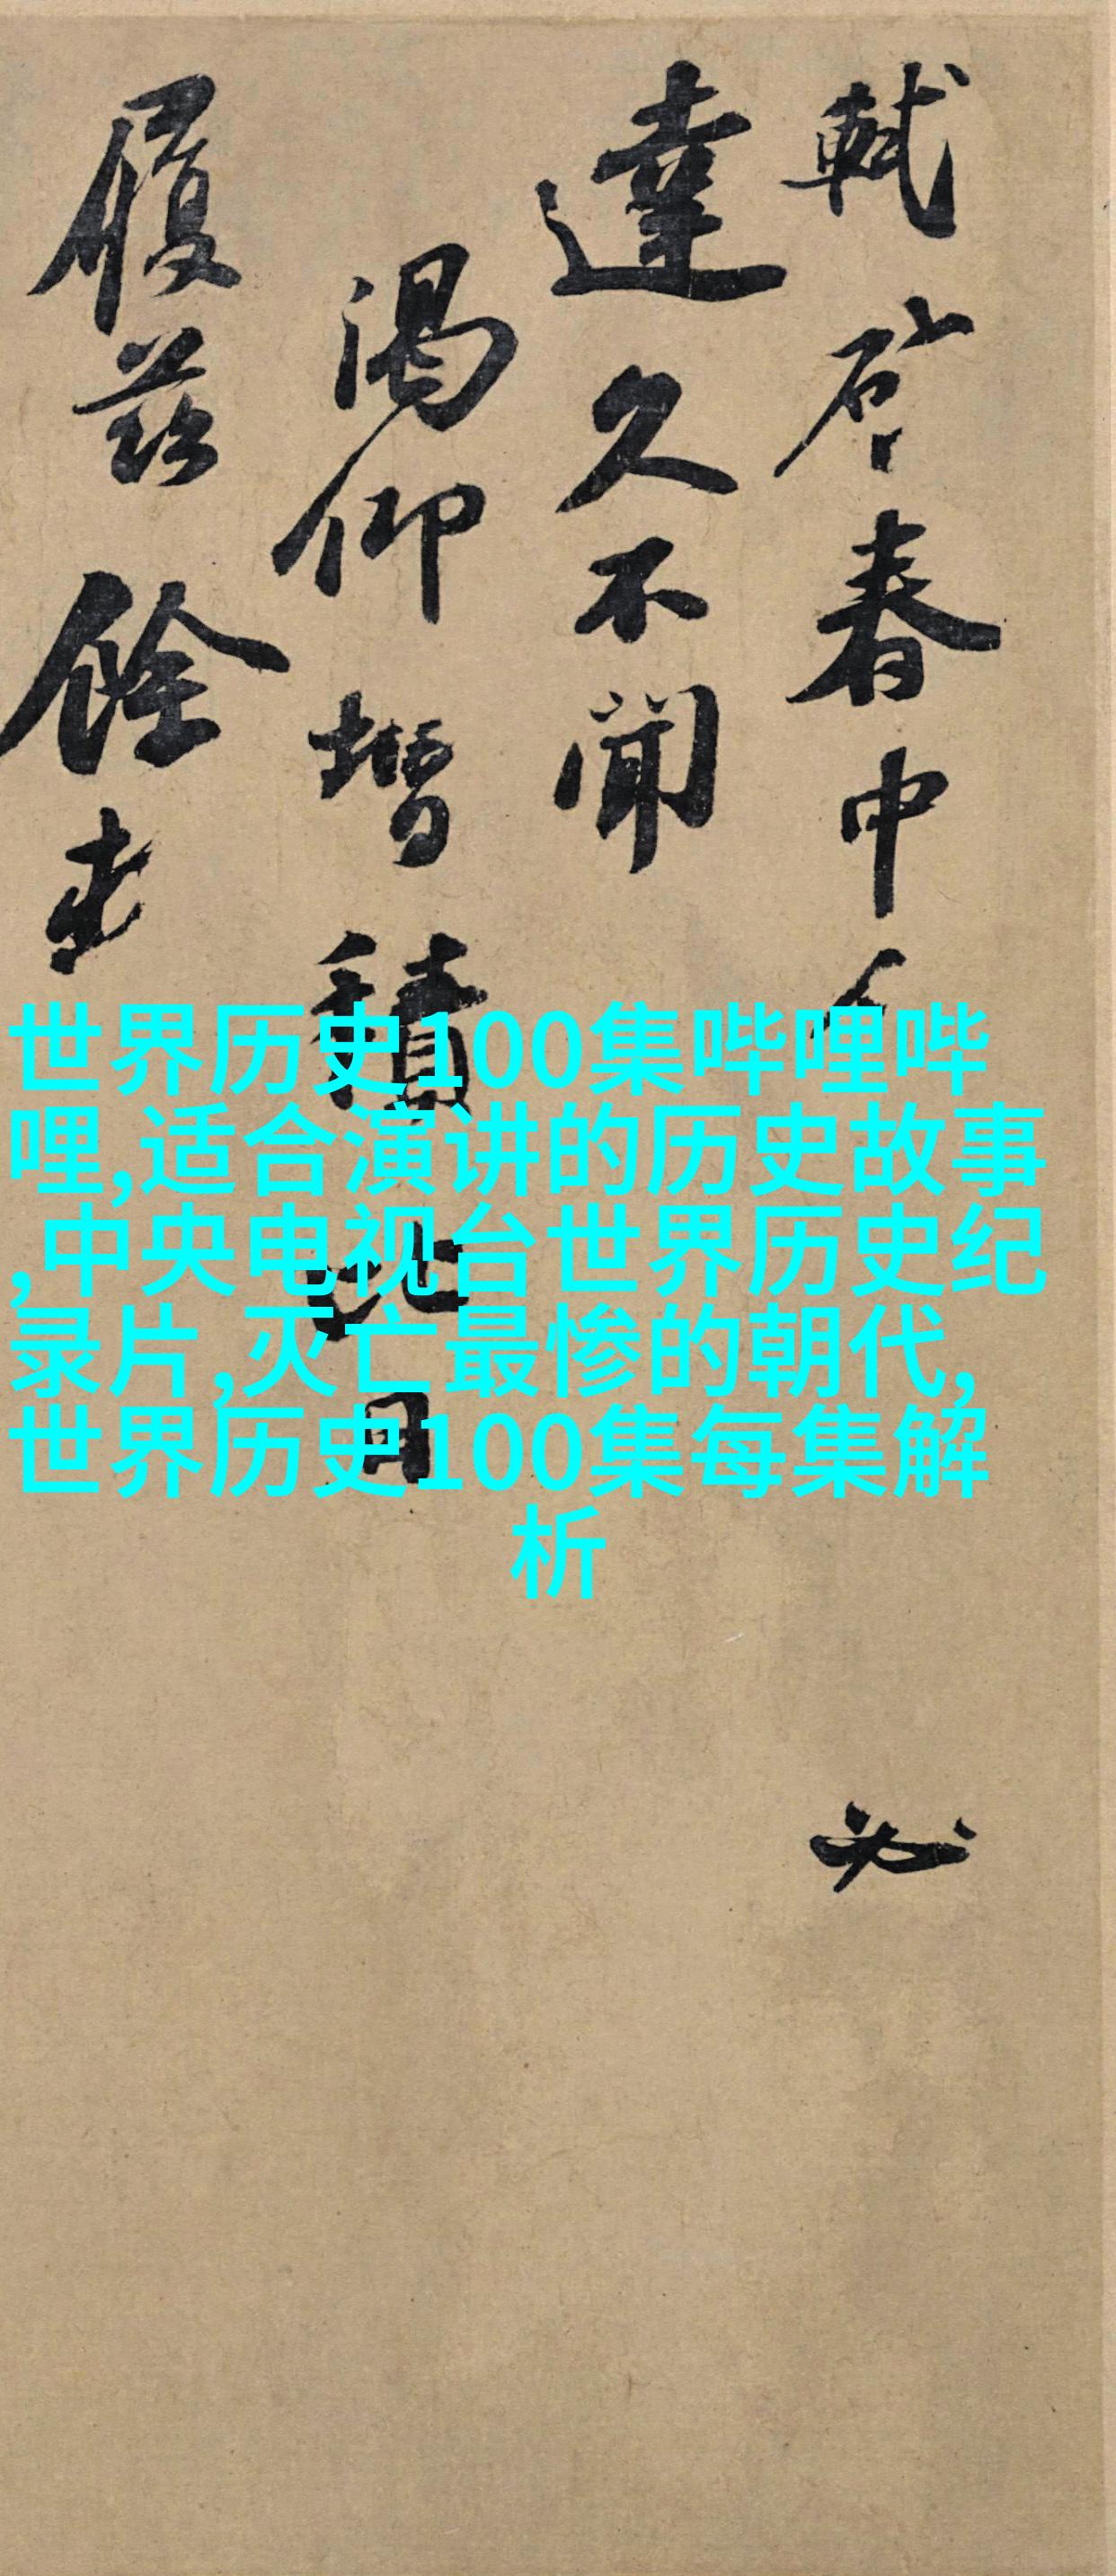 軾啓春中必
達久不聞
渴仰增積比日
履茲餘
世界历史100集哔哩哔
哩,适合演讲的历史故事
,中央电视台世界历史纪
录片,灭亡最惨的朝代,
世界历史100集每集解
析